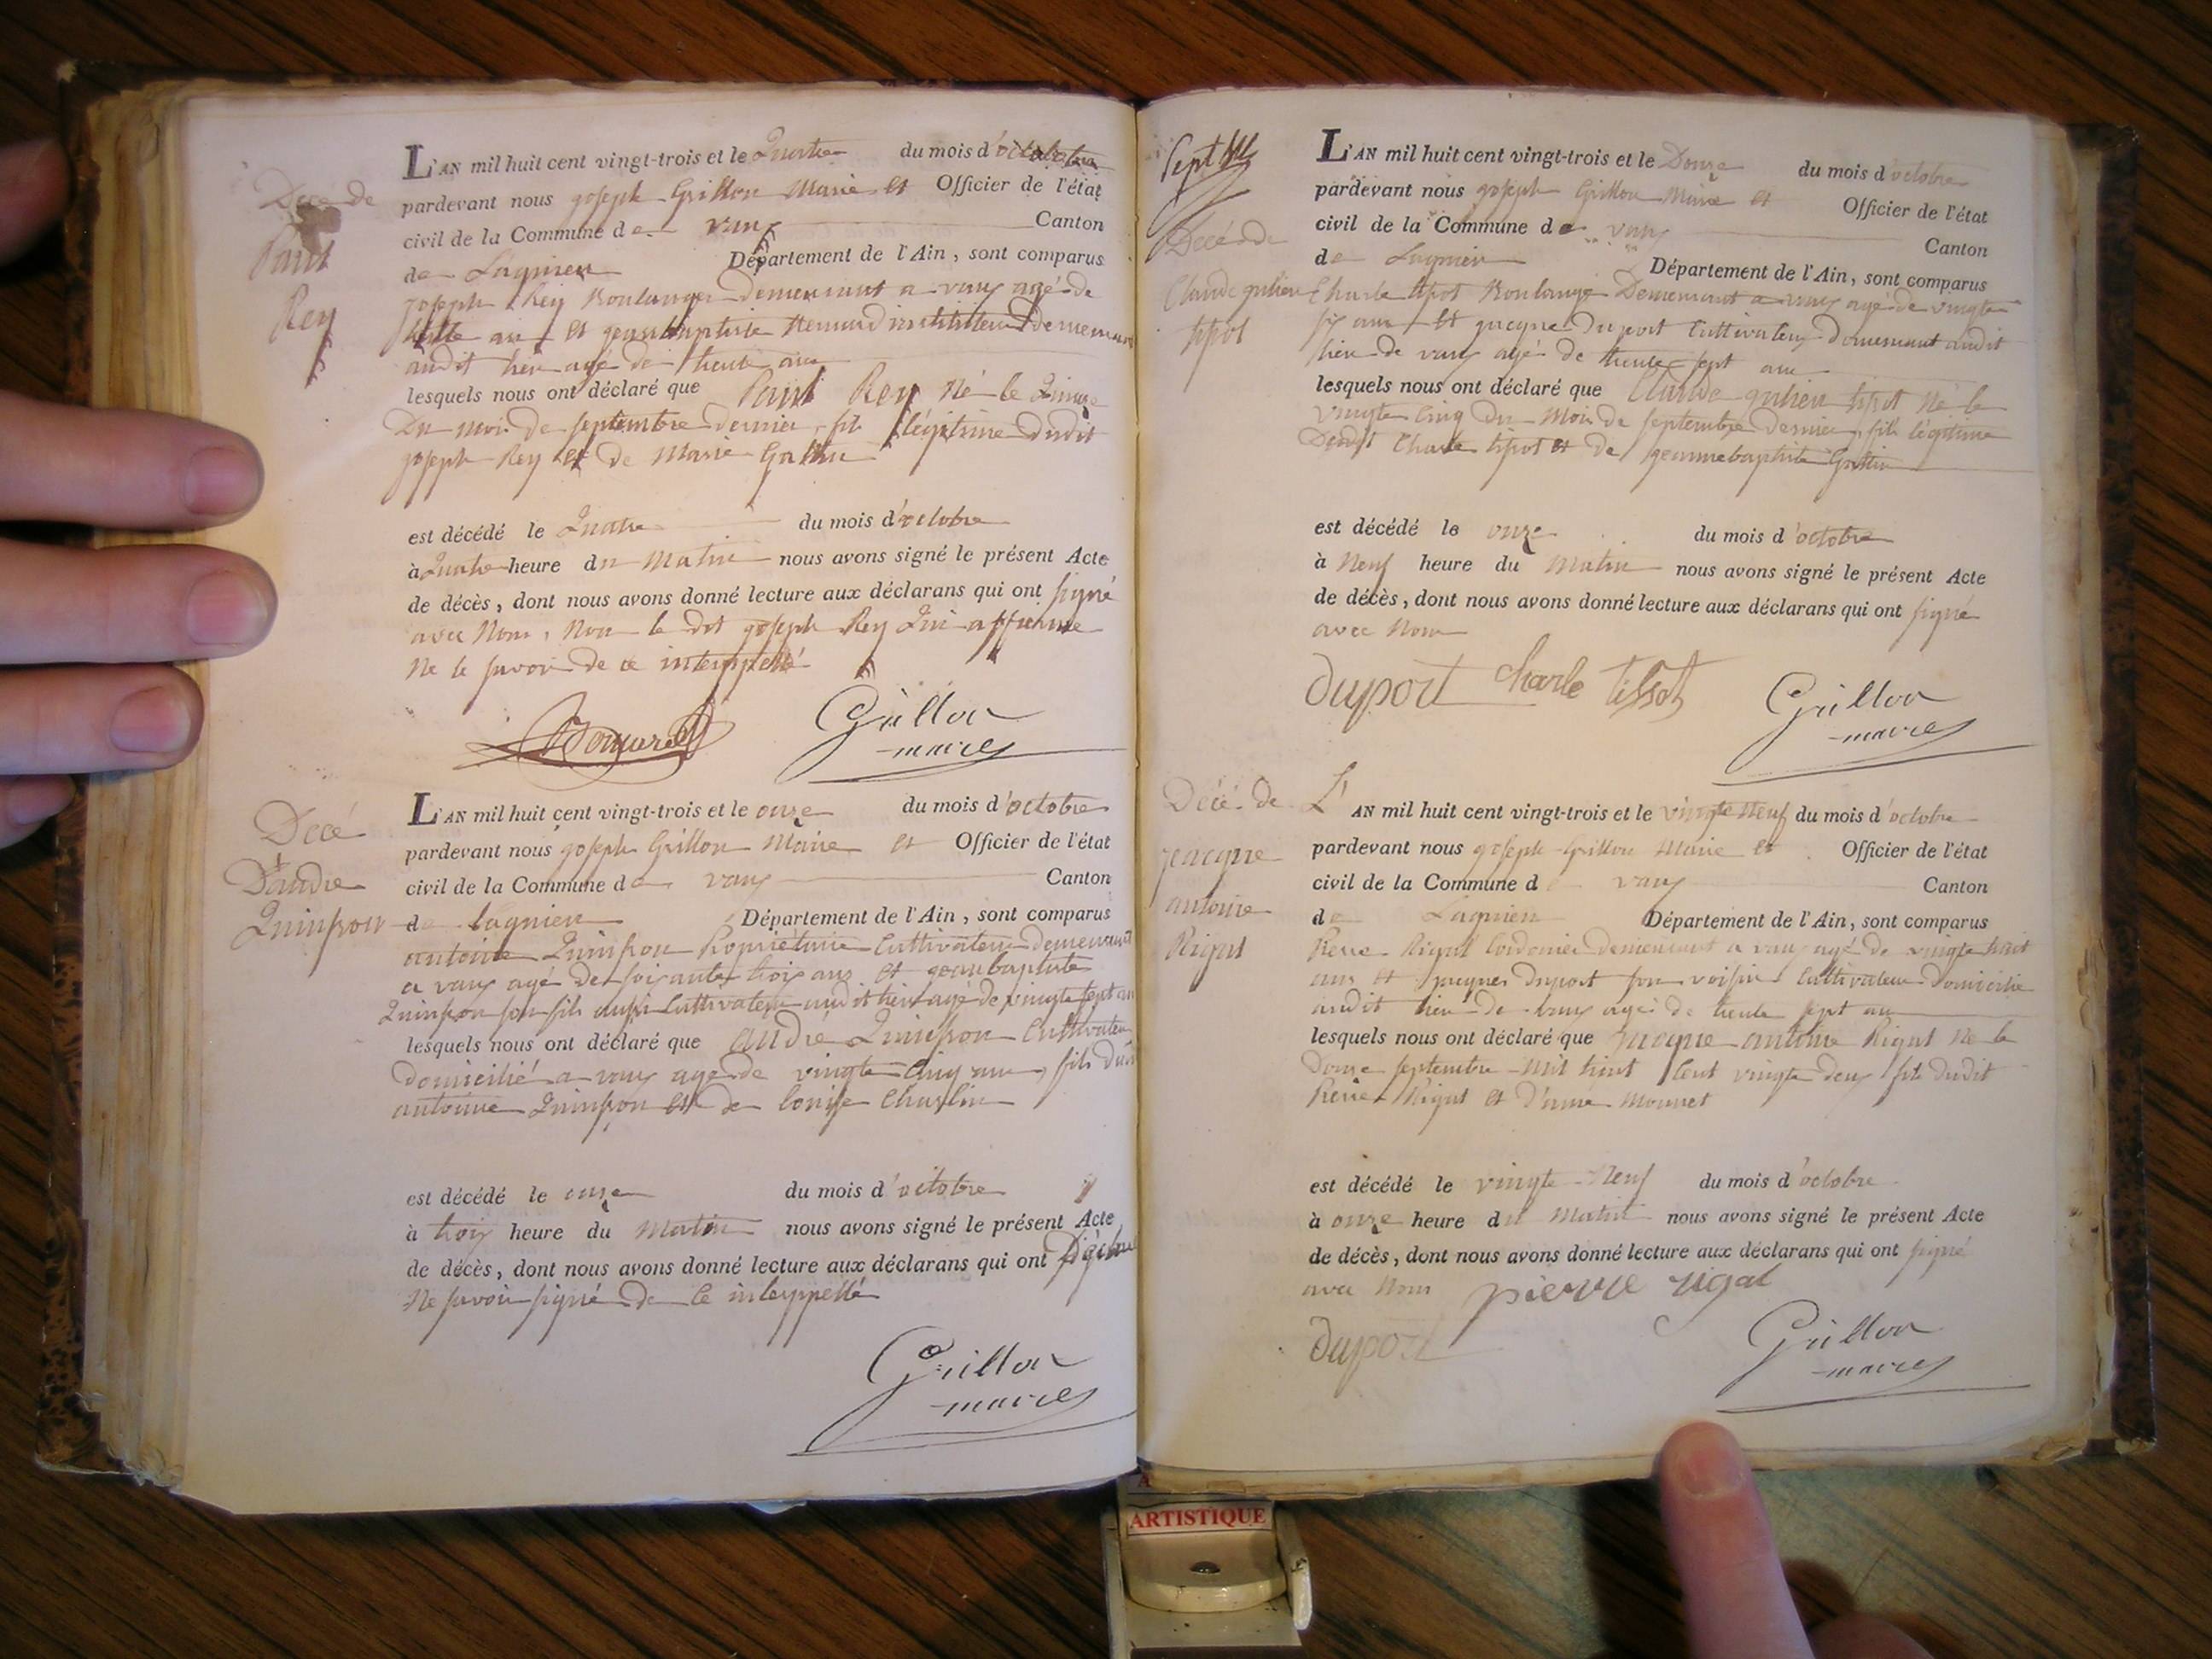 Décé de
Paul
Rey
L'AN mil huit cent vingt-trois et le Quatre du mois d'octobre
pardevant nous joseph Grillon Maire et Officier de l'état
civil de la Commune de vaux Canton
de Lagnieu Département de l'Ain, sont comparus
joseph Rey Boulanger demeurant a vaux agé de
trente ans et jeanbaptiste institituteur demeurant
audit lieu agé de trente ans
lesquels nous ont déclaré que Paul Rey né le Quinze
Du mois de septembre dernier, fils légitime dudit
joseph Rey et de Marie
est décédé le Quatre du mois d'octobre
à Quatre heure du Matin nous avons signé le présent Acte
de décès, dont nous avons donné lecture aux déclarans qui ont signé
avec Nous, Non le dit joseph Rey Qui affirme
Ne le savoir de ce interppellé
Grillon
maire
Décé
D'andre
Quinson
L'AN mil huit cent vingt-trois et le onze du mois d'octobre
pardevant nous joseph Grillon Maire et Officier de l'état
civil de la Commune de vaux Canton
de lagnieu Département de l'Ain, sont comparus
antoine Quinson Propriétaire Cultivateur demeurant
a vaux agé de soixante trois ans et jeanbaptiste
Quinson son fils aussi Cultivateur audit lieu agé de vingte sept ans
lesquels nous ont déclaré que andre Quinson Cultivateur
domicilié a vaux agé de vingte Cinq ans, fils dudit
antoine Quinson et de louise Charlin
est décédé le onze du mois d'octobre
à trois heure du Matin nous avons signé le présent Acte
de décès, dont nous avons donné lecture aux déclarans qui ont
Ne savoir signé de ce interppellé
Grillon
maire
Décé de
Claude julien
tipot
L'AN mil huit cent vingt-trois et le Douze du mois d'octobre
pardevant nous joseph Grillon Maire et Officier de l'état
civil de la Commune de vaux Canton
de Lagnieu Département de l'Ain, sont comparus
Charle tipot Boulangé Demeurant a vaux agé de vingte
six ans et jacque Duport Cultivateur Demeurant audit
lieu de vaux agé de trente sept ans
lesquels nous ont déclaré que Claude julien tipot né le
vingte Cinq du Mois de septembre Dernier, fils légitime
Dudit Charle tipot et de jeannebaptiste
est décédé le onze du mois d'octobre
à Neuf heure du Matin nous avons signé le présent Acte
de décès, dont nous avons donné lecture aux déclarans qui ont signé
avec Nous
duport Charle tissot
Grillon
maire
Décé de
jeacque
antoine
Rigat
L'AN mil huit cent vingt-trois et le vingte Neuf du mois d'octobre
pardevant nous joseph Grillon Maire et Officier de l'état
civil de la Commune de vaux Canton
de Lagnieu Département de l'Ain, sont comparus
Pierre Rigat Cordonier demeurant a vaux agé de vingte huit
ans et jacques Duport son voisin Cultivateur Domicilié
audit lieu de vaux agé de trente sept ans
lesquels nous ont déclaré que jacque antoine Rigat né le
Douze septembre Mil huit Cent vingte deux fils dudit
Pierre Rigat et D'anne Monnet
est décédé le vingte Neuf du mois d'octobre
à onze heure du Matin nous avons signé le présent Acte
de décès, dont nous avons donné lecture aux déclarans qui ont signé
avec Nous pierre rigat
duport
Grillon
maire
ARTISTIQUE